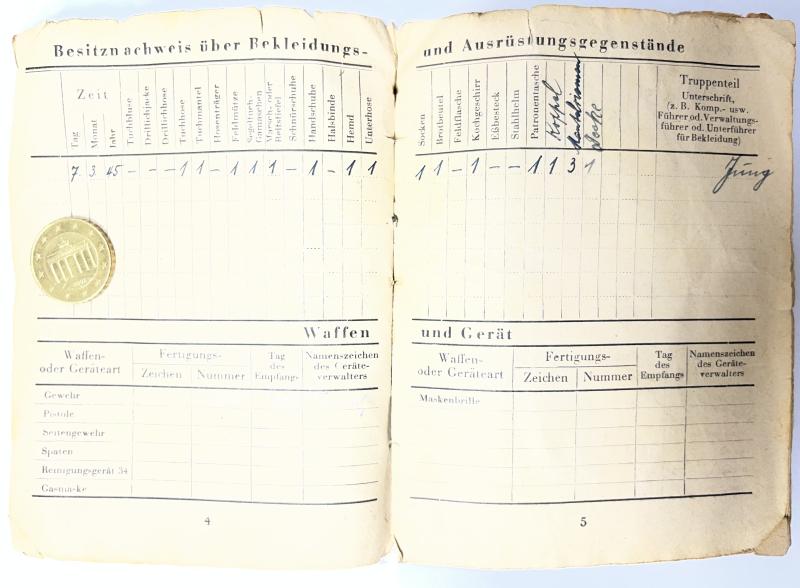 Besitznachweis über Bekleidungs-
Zeit
Tag
Monat
Jahr
Tuchbluse
Drillichjacke
Drillichhose
Tuchhose
Tuchmantel
Hosenträger
Feldmütze
Segeltuch-
Gamaschen
Marsch- oder
Reitstiefel
Schnürschuhe
Handschuhe
Halsbinde
Hemd
Unterhose
7. 3. 45 – – – 1 1 – 1 1 1 – 1 – 1 1
Waffen
Waffen-
oder Geräteart
Fertigungs-
Zeichen
Nummer
Tag
des
Empfangs
Namenszeichen
des Geräte-
verwalters
Gewehr
Pistole
Seitengewehr
Spaten
Reinigungsgerät 34
Gasmaske
4
und Ausrüstungsgegenstände
Socken
Brotbeutel
Feldflasche
Kochgeschirr
Eßbesteck
Stahlhelm
Patronentasche
Koppel
Mantelriemen
Decke
Truppenteil
Unterschrift,
(z. B. Komp.- usw.
Führer od. Verwaltungs-
führer od. Unterführer
für Bekleidung)
1 1 – 1 – – 1 1 3 1 Jung
und Gerät
Waffen-
oder Geräteart
Fertigungs-
Zeichen
Nummer
Tag
des
Empfangs
Namenszeichen
des Geräte-
verwalters
Maskenbrille
5